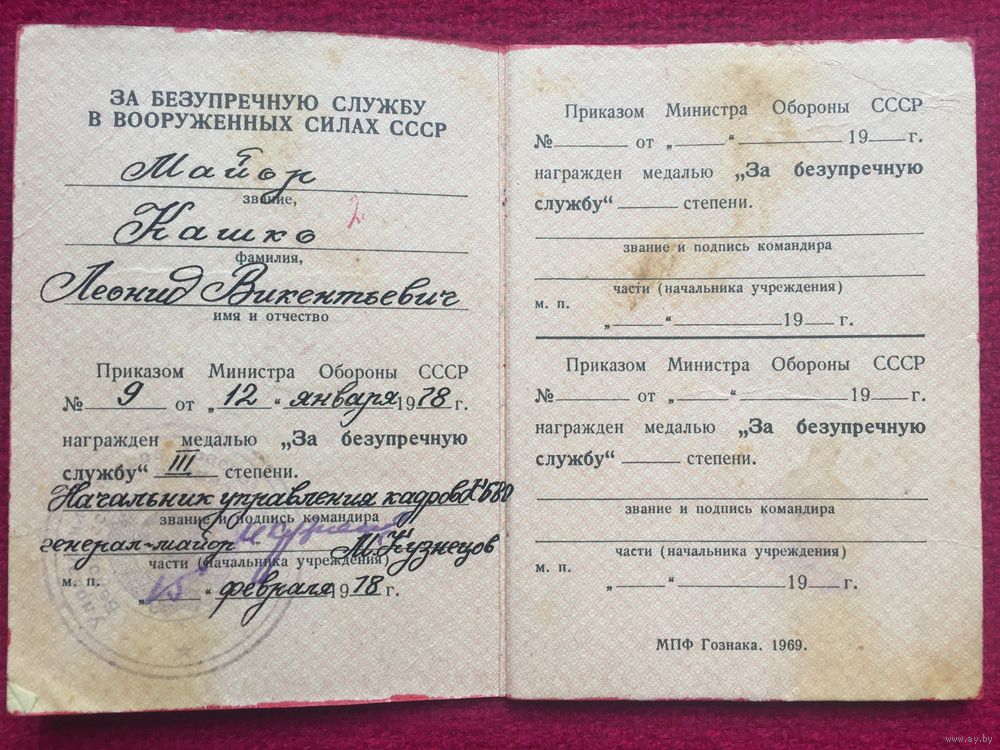 ЗА БЕЗУПРЕЧНУЮ СЛУЖБУ
В ВООРУЖЕННЫХ СИЛАХ СССР
Майор
звание,
2
Кашко
фамилия,
Леонид Викентьевич
имя и отчество
Приказом Министра Обороны СССР
№ 9 от „12“ января 1978 г.
награжден медалью „За безупречную
службу“ III степени.
Начальник управления кадров КБВО
звание и подпись командира
генерал-майор М. Кузнецов
части (начальника учреждения)
м. п.
„15“ февраля 1978 г.
Приказом Министра Обороны СССР
№ от „ “ 19 г.
награжден медалью „За безупречную
службу“ степени.
звание и подпись командира
части (начальника учреждения)
м. п.
„ “ 19 г.
Приказом Министра Обороны СССР
№ от „ “ 19 г.
награжден медалью „За безупречную
службу“ степени.
звание и подпись командира
части (начальника учреждения)
м. п.
„ “ 19 г.
МПФ Гознака. 1969.
www.ay.by